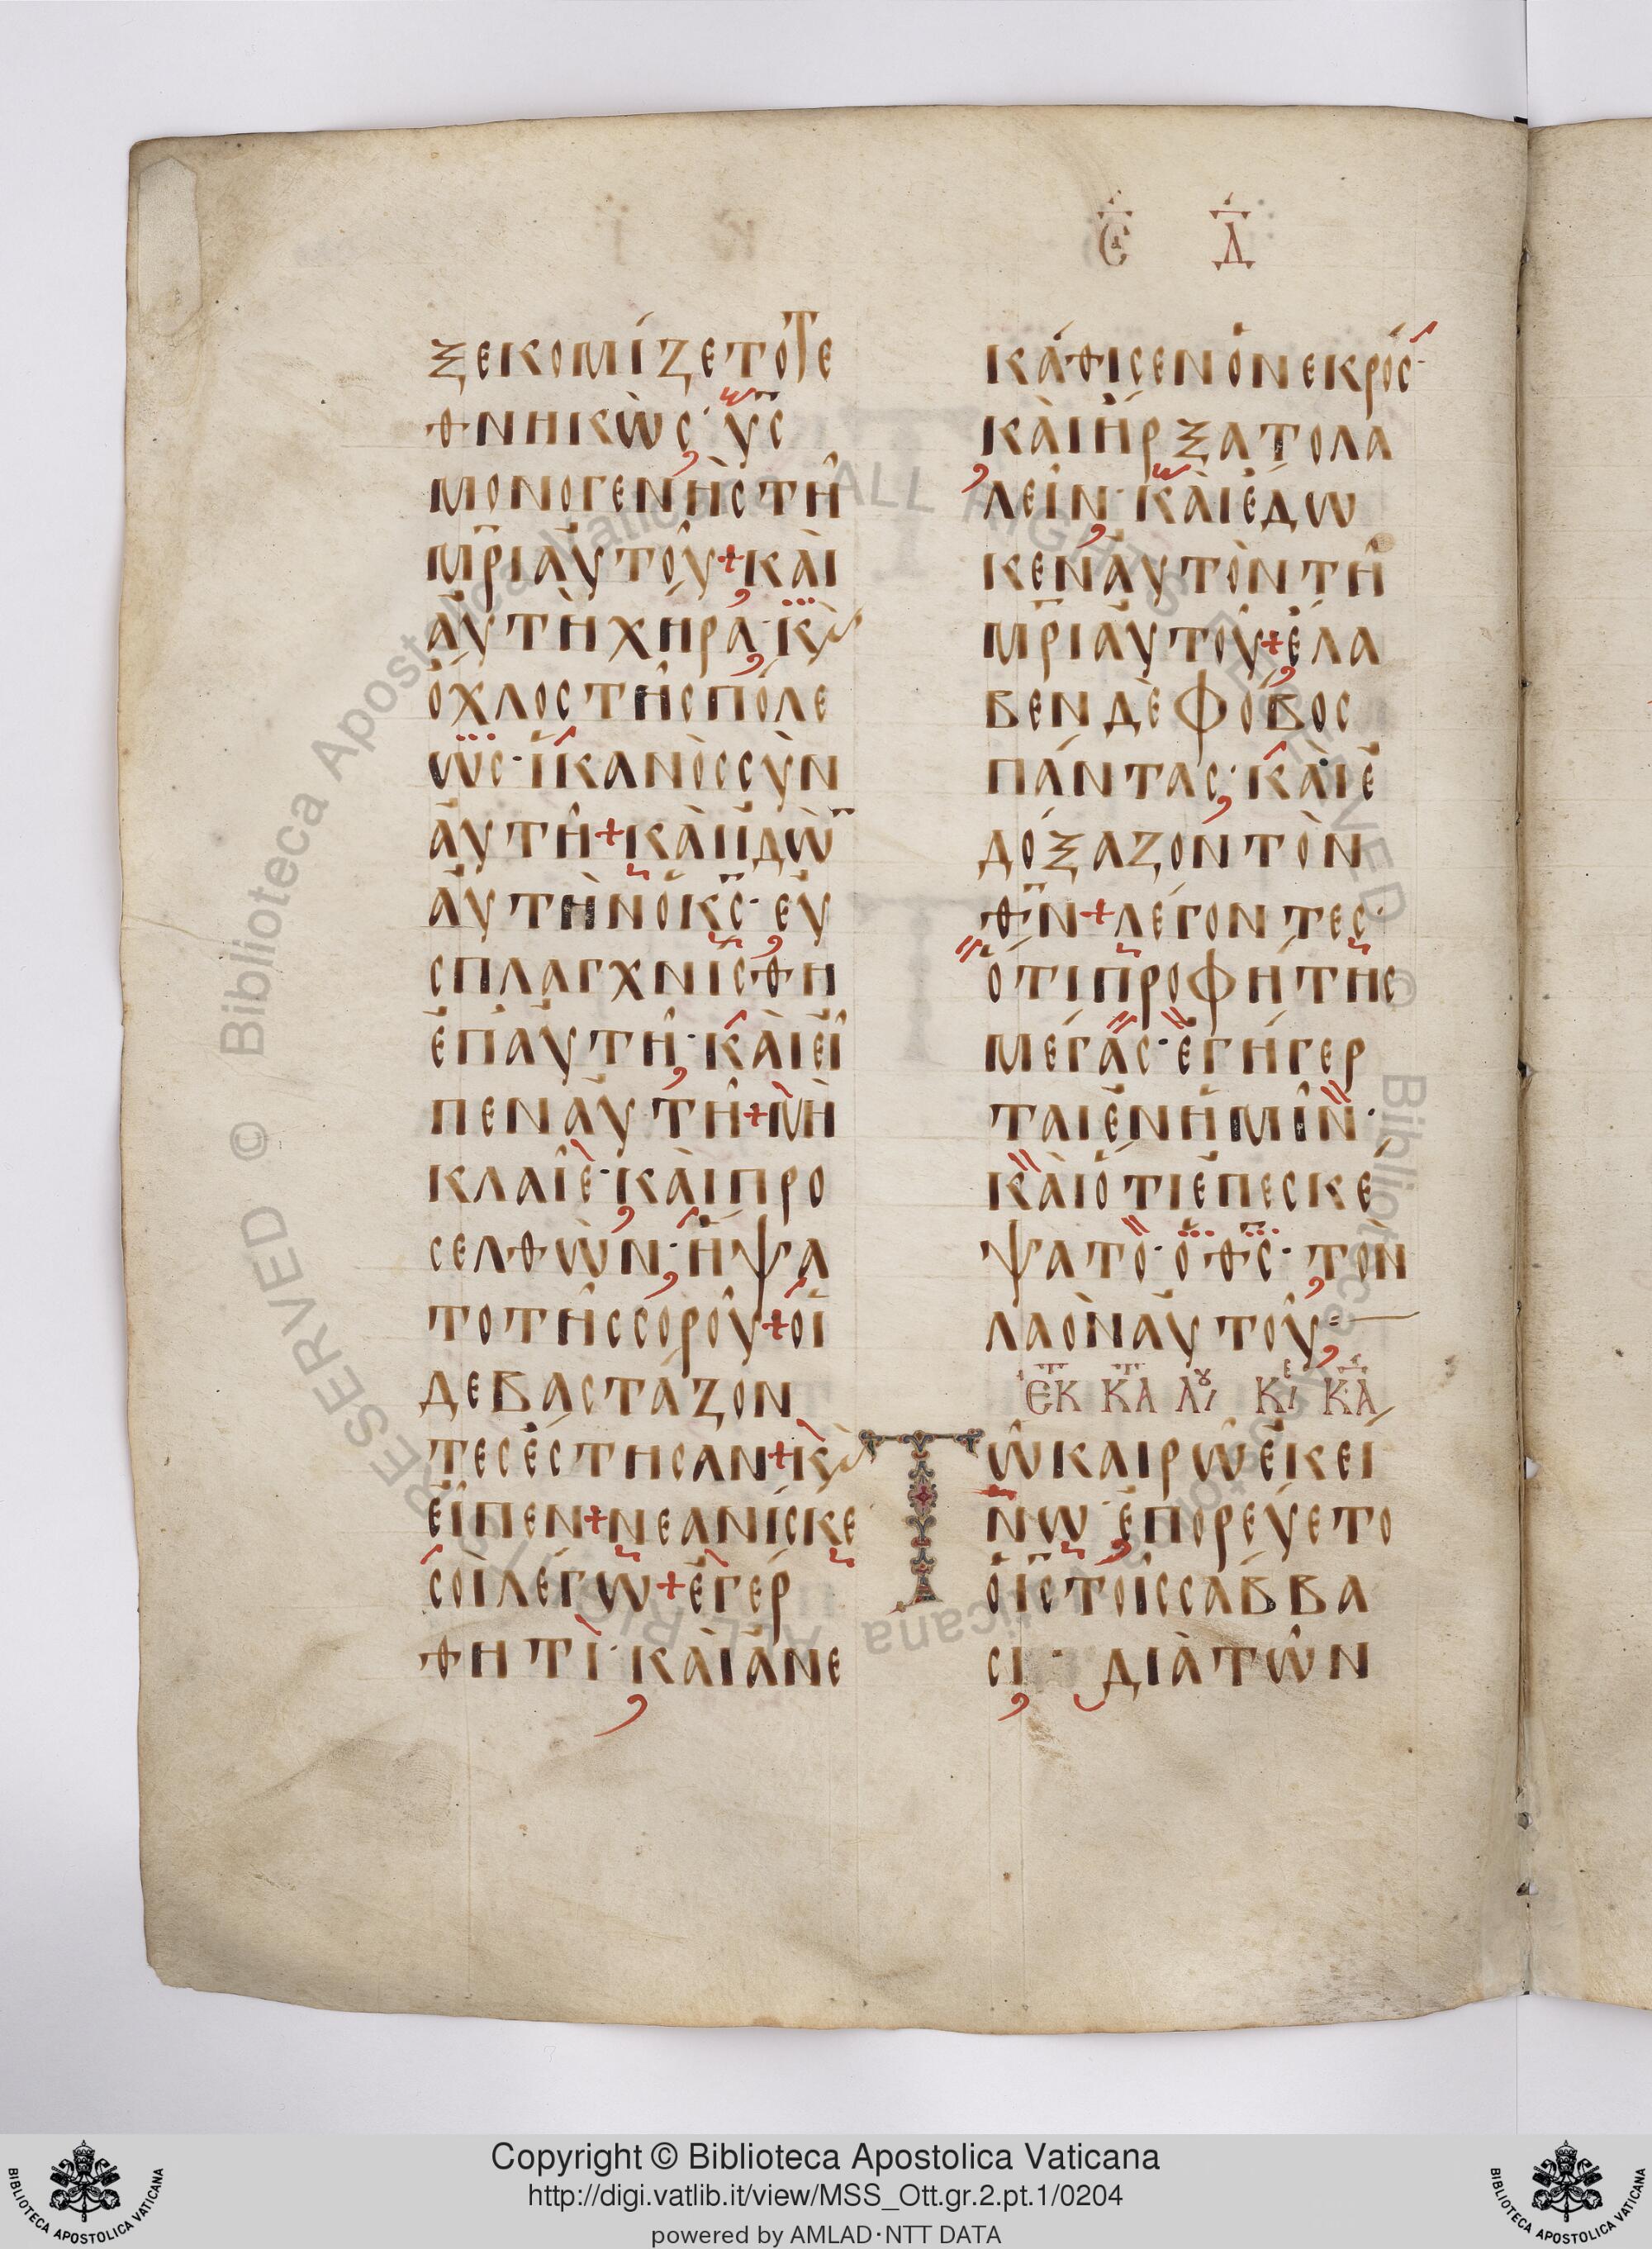 Ϲ Δ
ξεκομίζετοτε
θνηκὼς· ῡς
μονογενὴςτῆ
μ̅ρ̅ιἀυτοῦ+κὰι
ἀυτὴχήρα·κ̀
ὄχλοςτῆςπόλε
ως·ἱκανὸςσὺν
ἀυτῆ+κὰιἰδὼ̅
ἀυτὴνὁκ̅ς̅·ἐυ
σπλαγχνίσθη
ἐπἀυτῆ·κὰιεἶ
πενἀυτῆ+μὴ
κλαῖε·κὰιπρο
σελθὼν·ἥψα
τοτῆςσοροῦ+οἱ
δεβαστάζον
τεςἔστησαν+κ̀
εἶπεν+νεανίσκε
σοὶλέγω+ἐγέρ
θητι·κὰιἀνε
κάθισενὁνεκρός·
κὰιἤρξατολα
λεῖν·κὰιἔδω
κενἀυτὸντῆ
μ̅ρ̅ιἀυτοῦ+ἔλα
βενδὲφόβος
πάντας·κὰιἐ
δόξαζοντὸν
θ̅ν̅+λέγοντες·
ὅτιπροφήτης
μέγας·ἐγήγερ
ταιἐνἡμῖν·
κὰιὅτιἐπεσκέ
ψατο·ὁθ̅ς̅·τὸν
λαὸνἀυτοῦ
ΕΚ ΚΑ ΛΥ ΚΙ ΚΑ
Τῶκαιρῶἐκεί
νω·ἐπορεύετο
ὁι̅ς̅τοῖςσάββα
σι· διὰτῶν
Copyright © Biblioteca Apostolica Vaticana
http://digi.vatlib.it/view/MSS_Ott.gr.2.pt.1/0204
powered by AMLAD·NTT DATA
BIBLIOTECA APOSTOLICA VATICANA
BIBLIOTECA APOSTOLICA VATICANA